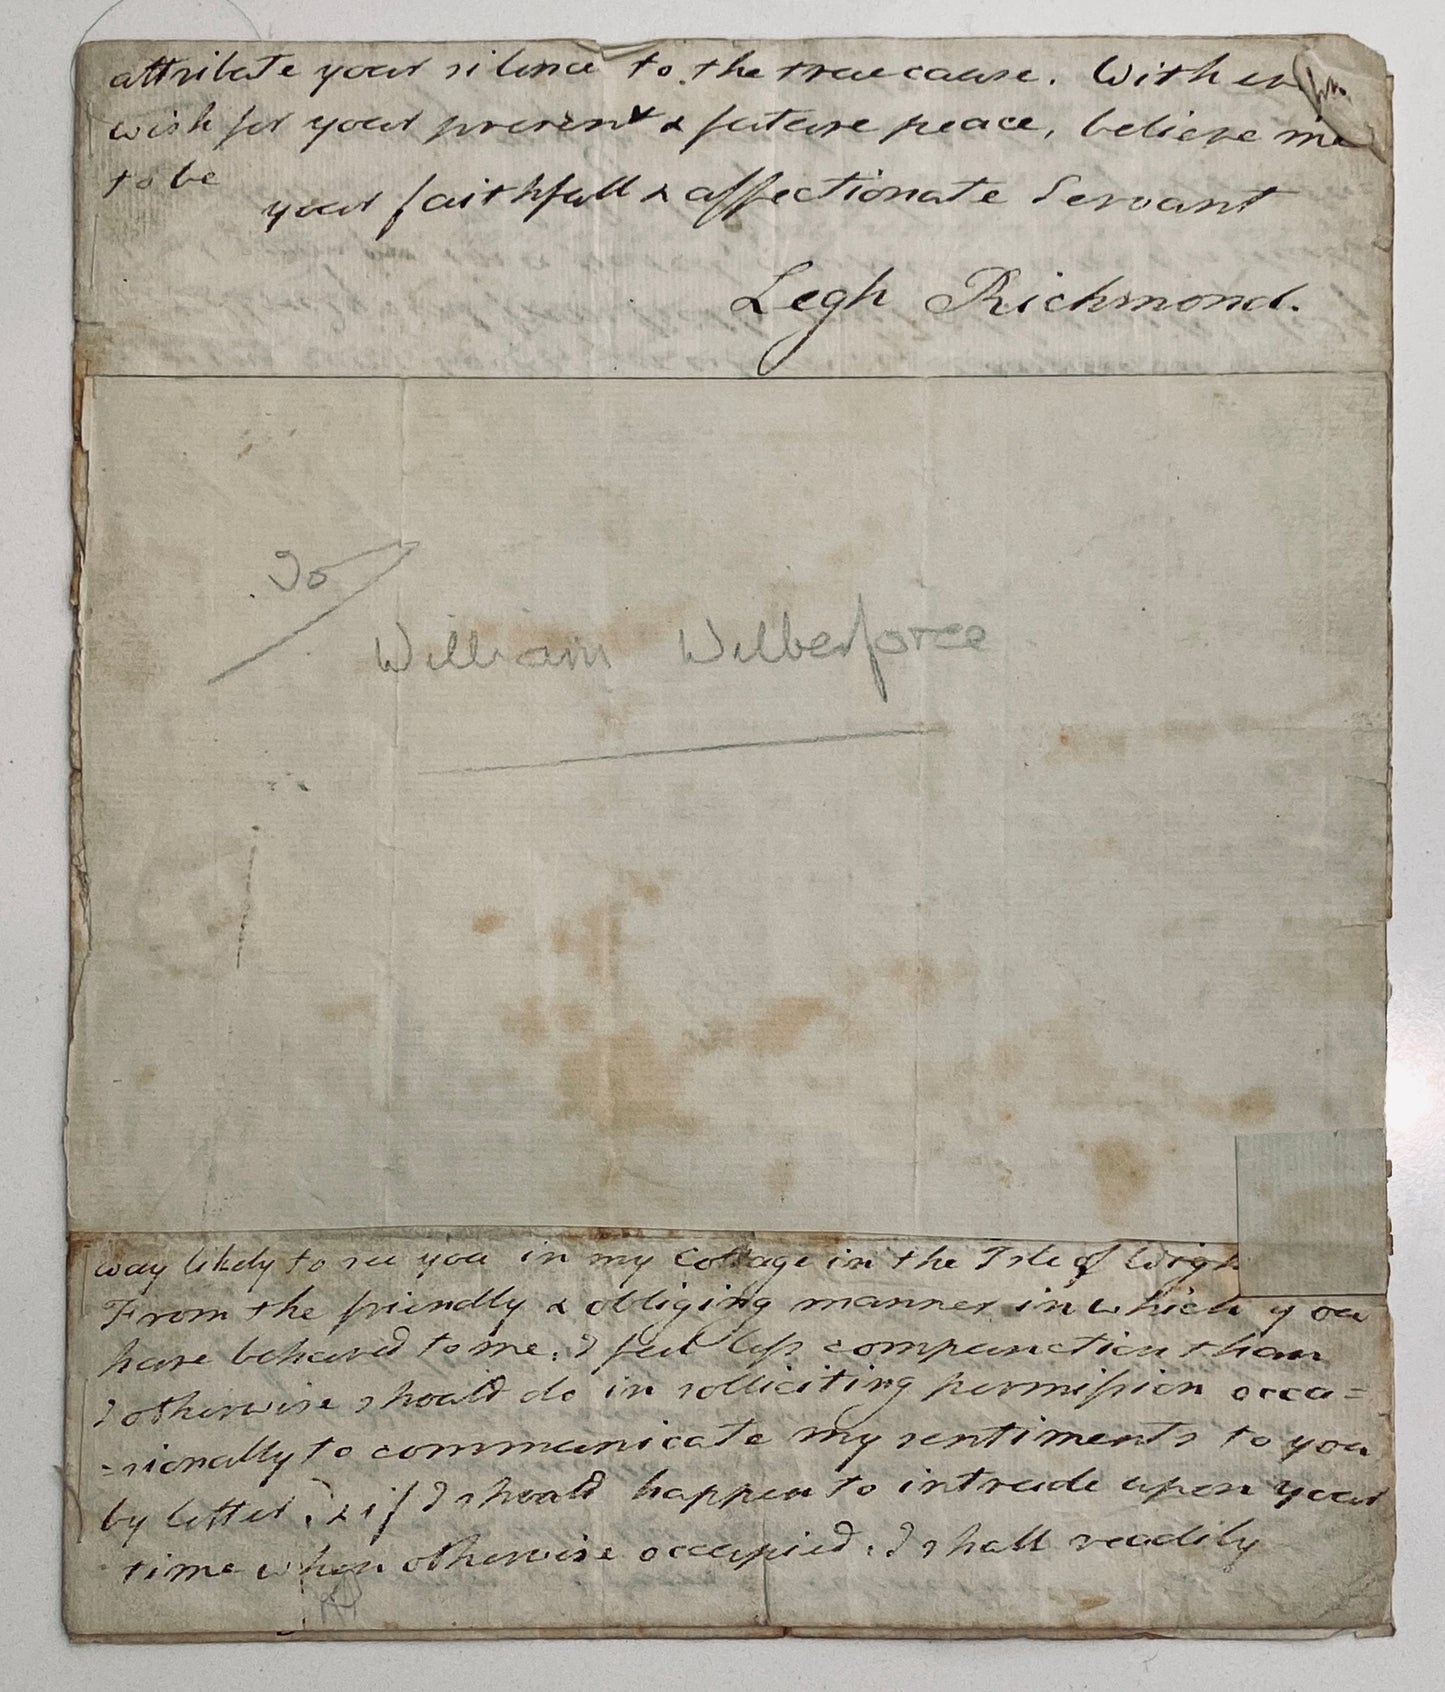 attribute your silence to the true cause. With
wish for your present & future peace, believe me
to be
your faithfull & affectionate Servant
Legh Richmond.
To
William Wilberforce
way likely to see you in my Cottage in the Isle of Wigh
From the friendly & obliging manner in which you
have behaved to me, I feel less compunction than
I otherwise should do in solliciting permission occa=
=sionally to communicate my sentiments to you
by letter, & if I should happen to intrude upon your
time when otherwise occupied, I shall readily